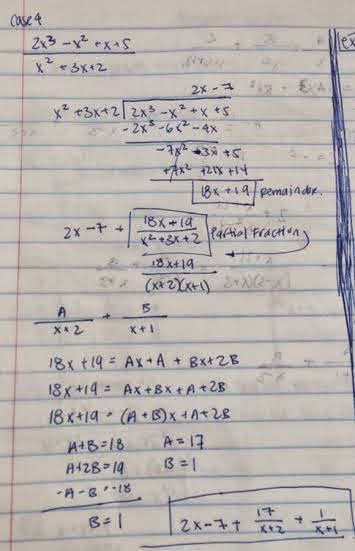 case 4
2x³ - x² + x + 5
x² + 3x + 2
2x - 7
x² + 3x + 2 2x³ - x² + x + 5
-2x³ - 6x² - 4x
-7x² - 3x + 5
+7x² + 21x + 14
18x + 19 remainder
2x - 7 + 18x + 19 / x² + 3x + 2 Partial Fraction
18x + 19
(x+2)(x+1)
A / x+2 + B / x+1
18x + 19 = Ax + A + Bx + 2B
18x + 19 = Ax + Bx + A + 2B
18x + 19 = (A + B)x + A + 2B
A + B = 18 A = 17
A + 2B = 19 B = 1
-A - B = -18
B = 1
2x - 7 + 17 / x+2 + 1 / x+1